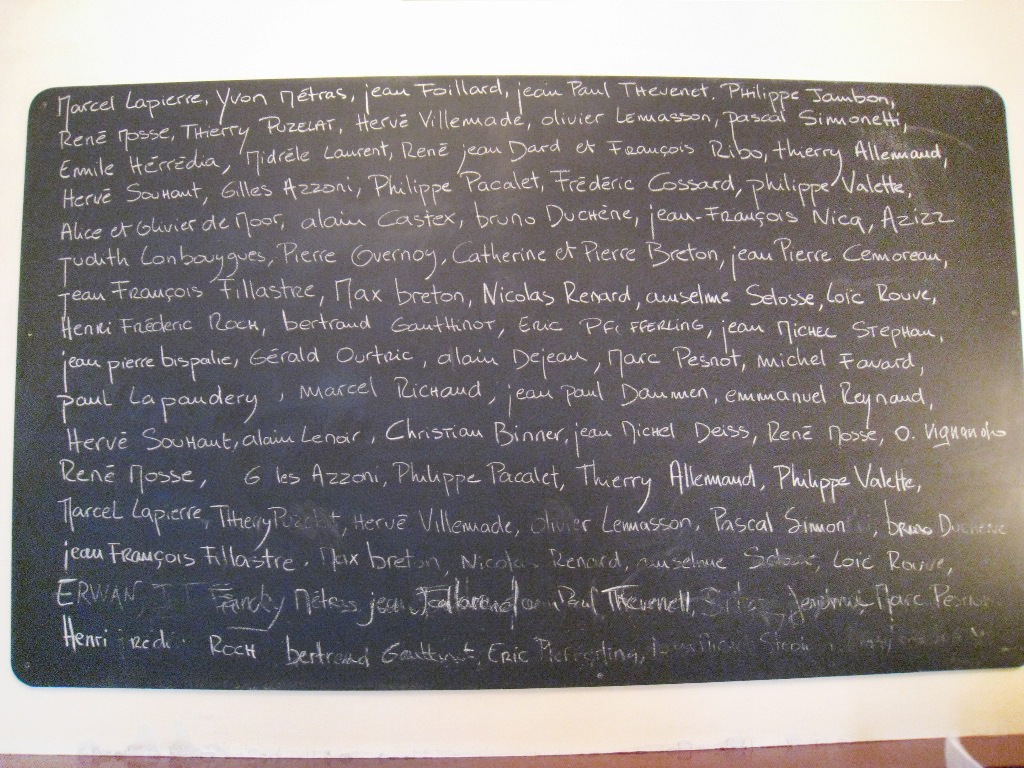 Marcel Lapierre, Yvon Métras, jean Foillard, jean Paul Thevenet, Philippe Jambon,
René Mosse, Thierry Puzelat, Hervé Villemade, olivier Lemasson, pascal Simonetti,
Emile Hérrédia, Midrèle Laurent, René jean Dard et François Ribo, thierry Allemand,
Hervé Souhaut, Gilles Azzoni, Philippe Pacalet, Frédéric Cossard, philippe Valette,
Alice et Olivier de Moor, alain Castex, bruno Duchène, jean-François Nicq, Azizz
Judith Lonbouygues, Pierre Overnoy, Catherine et Pierre Breton, jean Pierre Cemoreau,
jean François Fillastre, Max breton, Nicolas Renard, anselme Selosse, Loïc Rouve,
Henri Fréderic Roch, bertrand Gauthinot, Eric Pfifferling, jean Michel Stephan,
jean pierre bispalie, Gérald Ourtric, alain Dejean, Marc Pesnot, michel Favard,
paul Lapaudery, Marcel Richaud, jean paul Daumen, emmanuel Reynaud,
Hervé Souhaut, alain Lenoir, Christian Binner, jean Michel Deiss, René Mosse, O.
René Mosse, G les Azzoni, Philippe Pacalet, Thierry Allemand, Philippe Valette,
Marcel Lapierre, Thierry Puzelat, Hervé Villemade, olivier Lemasson, Pascal Simon, bruno Duchène
jean François Fillastre. Max breton, Nicolas Renard, anselme Loïc Rouve,
ERWAN, Métras jean Paul Thevenet, Marc
Henri Roch bertrand Eric